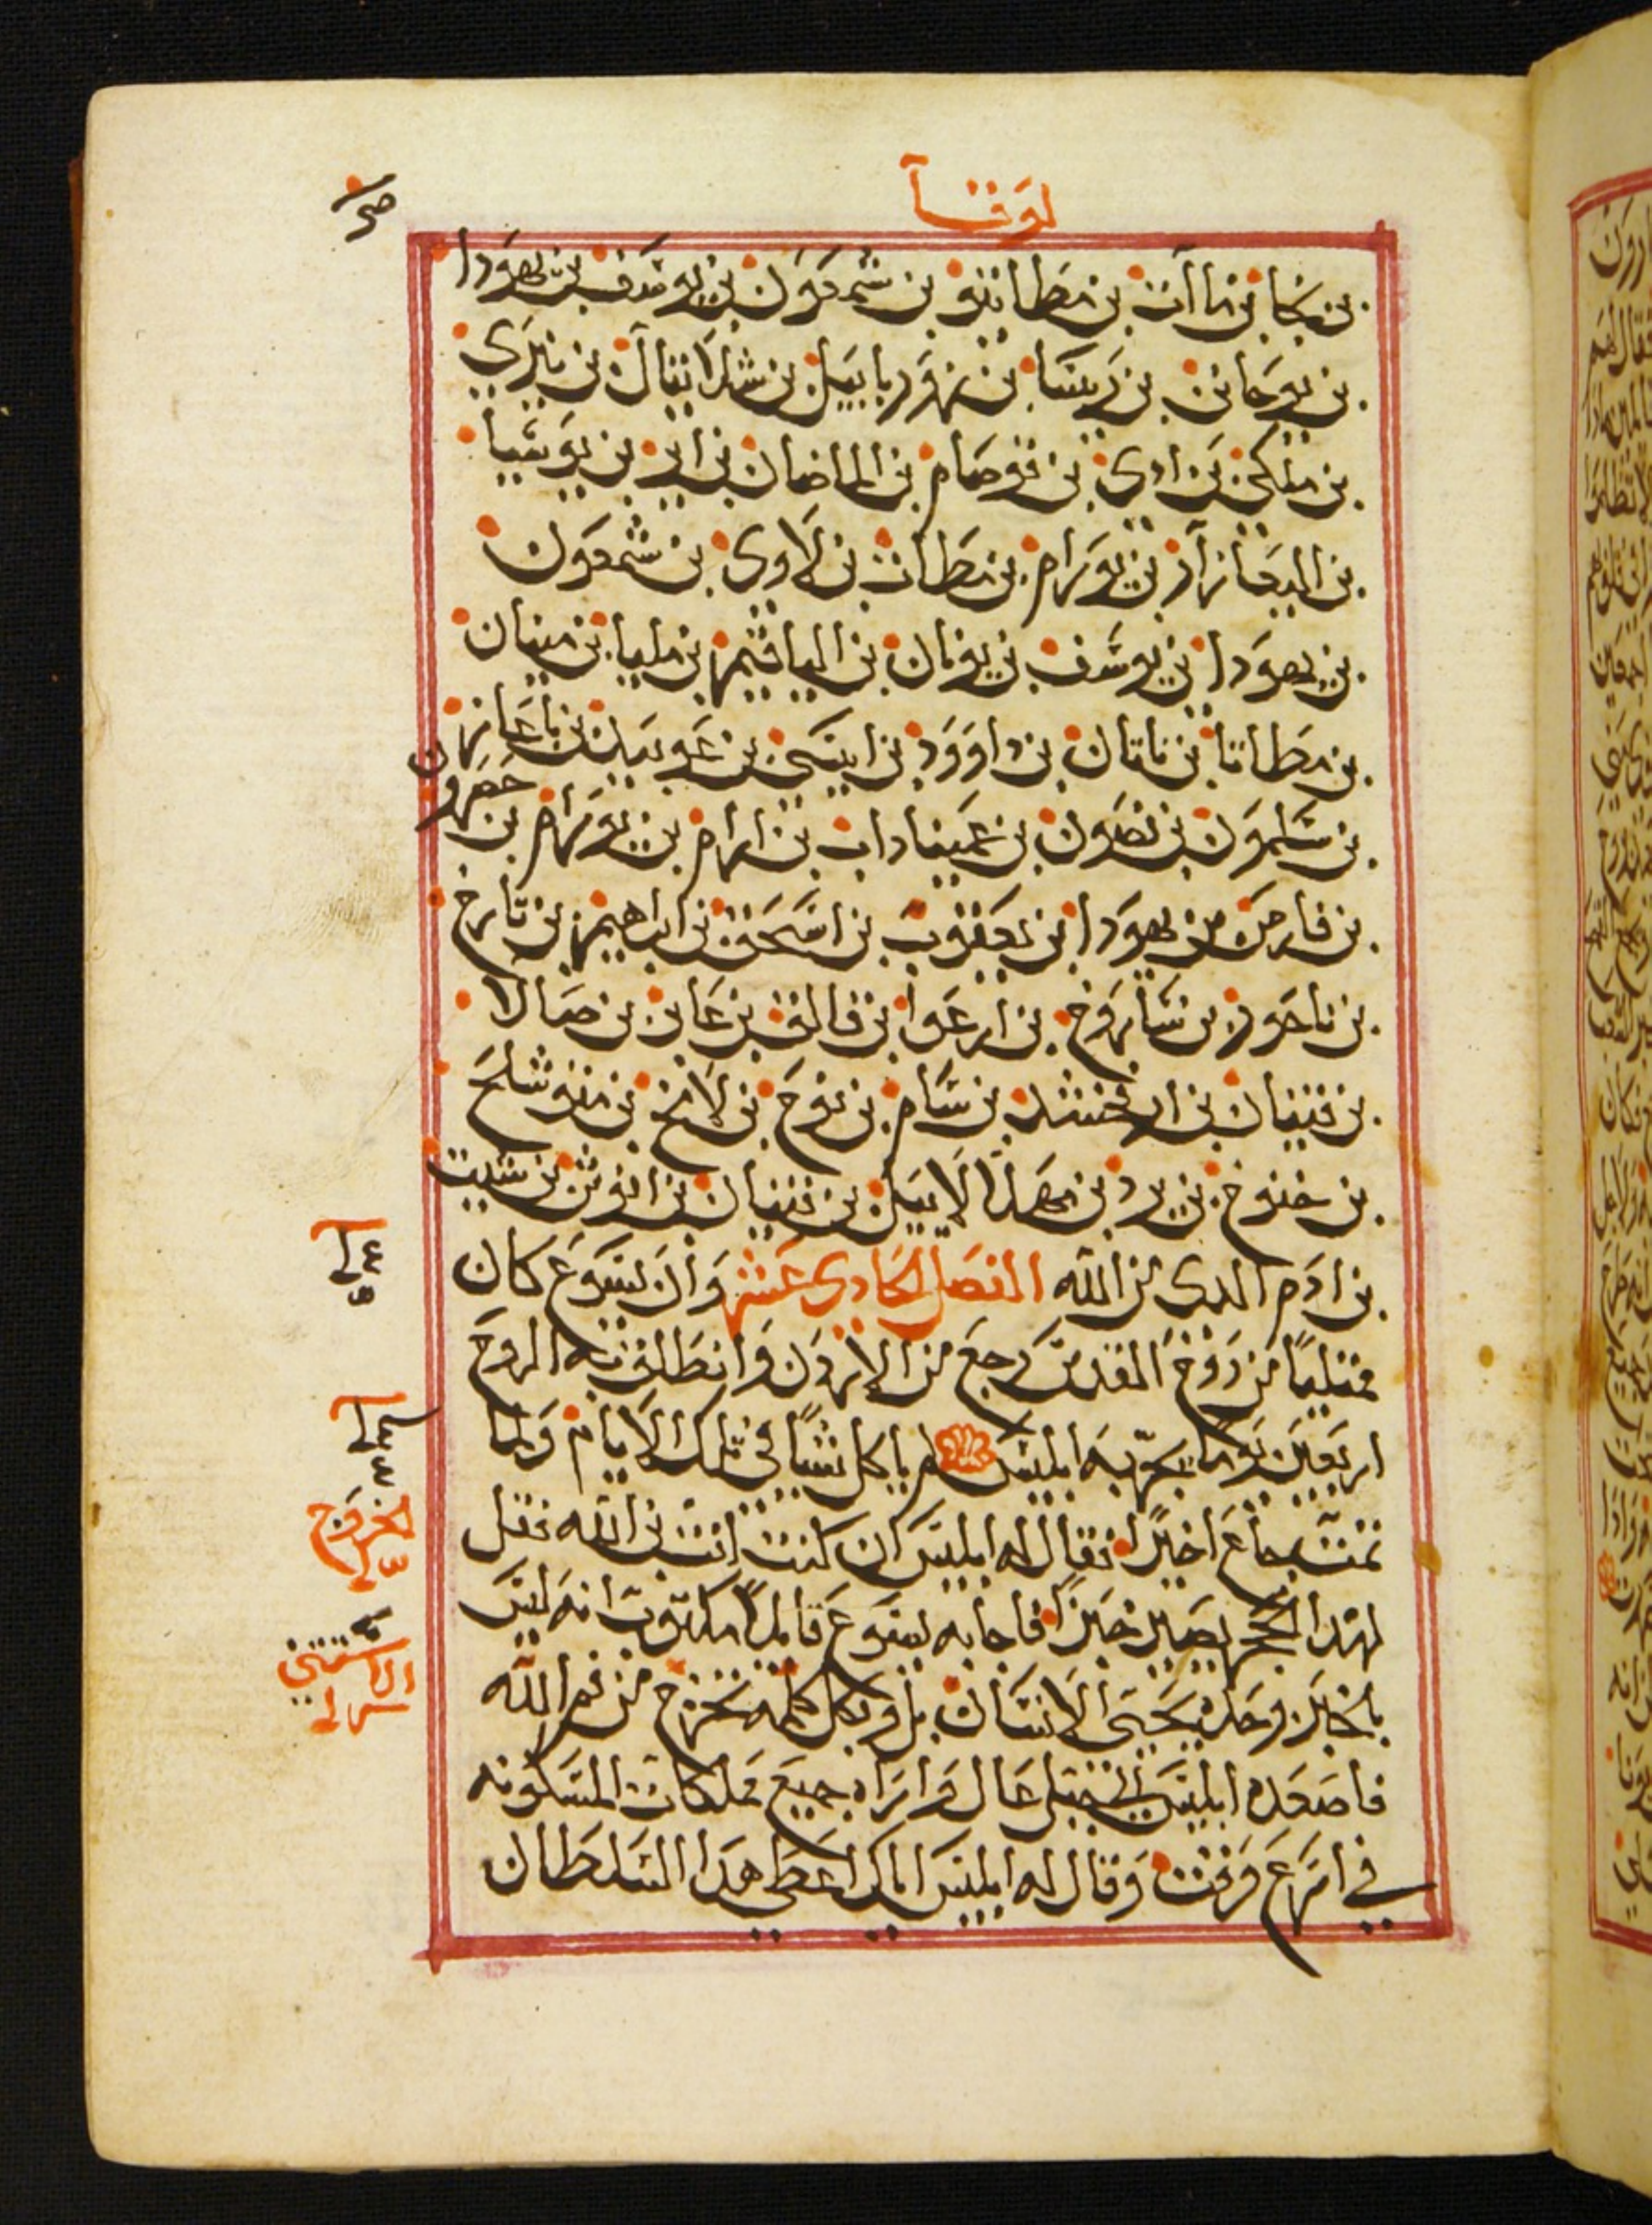 لوقا
بن نجا بن ماآت بن مطاتيو بن شمعون بن يوسف بن يهودا
بن يوحانن بن ريسا بن زوربابيل بن شلاتيال بن نيري
بن ملكي بن ادي بن قوصام بن الماضان بن اير بن يوسيا
بن اليعازار بن يورام بن مطات بن لاوي بن شمعون
بن يهودا بن يوسف بن يونان بن الياقيم بن مليا بن مينان
بن مطاتا بن ناتان بن داوود بن ايسي بن عوبيل بن باعاز
بن سلمون بن نصون بن عميناداب بن ارام بن يورام بن حصرون
بن فارص بن يهودا بن يعقوب بن اسحق بن ابراهيم بن تارخ
بن ناحور بن ساروخ بن ارعوا بن فالق بن عابر بن صالا
بن قينان بن ارفخشد بن سام بن نوح بن لامخ بن متوشلح
بن خنوخ بن يرد بن مهلالاييل بن قينان بن انوش بن شيت
بن ادم الدى من الله الفصل الحادى عشر وان يسوع كان
ممتليا من روح القدس رجع من الاردن وانطلق به الروح
اربعين يوما يجربه ابليس لم ياكل شيا في تلك الايام ولما
تمت جاع اخيرا فقال له ابليس ان كنت انت بن الله فقل
لهدا الحجر يصير خبزا فاجابه يسوع قايلا مكتوب انه ليس
بالخبز وحده يحيى الانسان بل وبكل كلمه تخرج من فم الله
فاصعده ابليس الى جبل عال واراه جميع مملكات المسكونه
في اسرع وقت وقال له ابليس اياك اعطي هدا السلطان
الخروج
الاستثنى